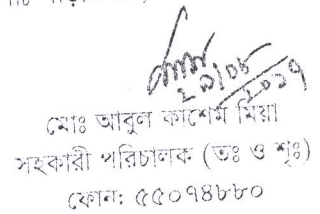 ২৯/০৮/২০১৭
মোঃ আবুল কাশেম মিয়া
সহকারী পরিচালক (তঃ ও শৃঃ)
ফোন: ৫৫০৭৪৮৮০